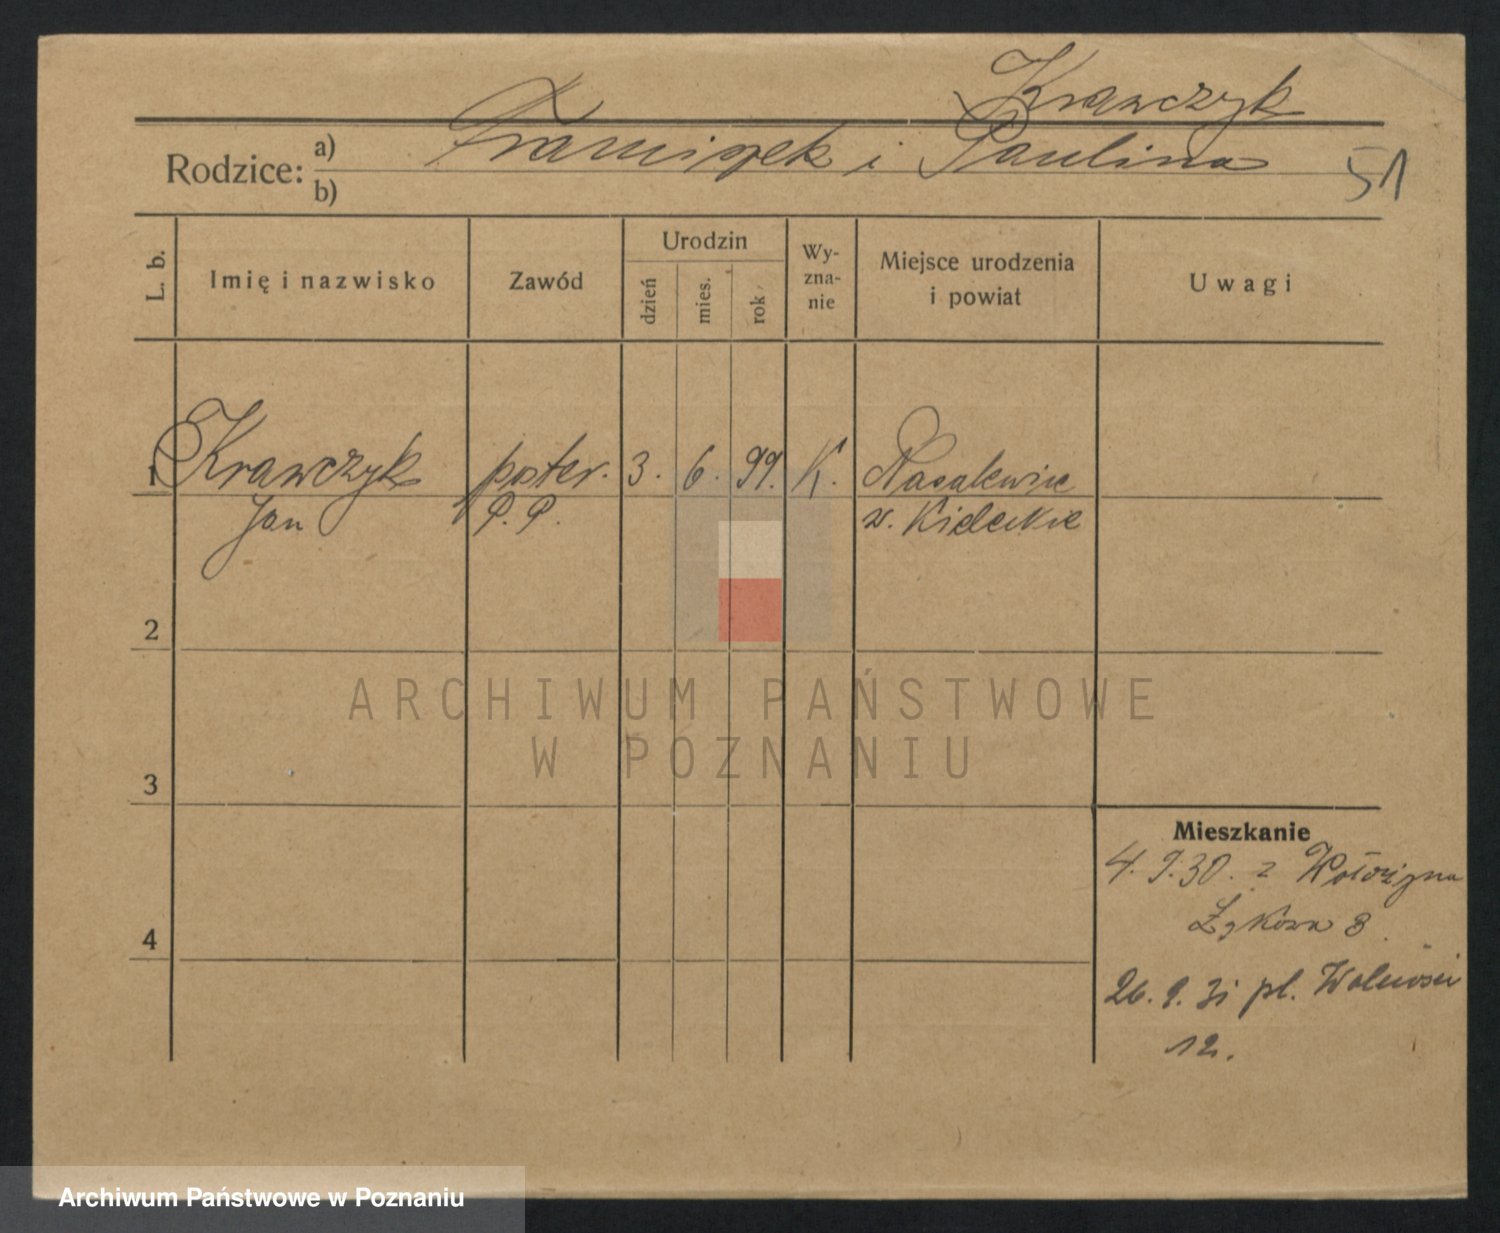 Krawczyk
Rodzice: a) Franciszek i Paulina
b)
51
L. b.
Imię i nazwisko
Zawód
Urodzin
dzień
mies.
rok
Wy-
zna-
nie
Miejsce urodzenia
i powiat
Uwagi
1 Krawczyk poster. 3. 6. 99. K.
Jan P. P. w. Kieleckie
2
3
4
Mieszkanie
4. 9. 30. z Wołożyna
8
26. 9. 31 pl. Wolności
12.
ARCHIWUM PAŃSTWOWE
W POZNANIU
Archiwum Państwowe w Poznaniu